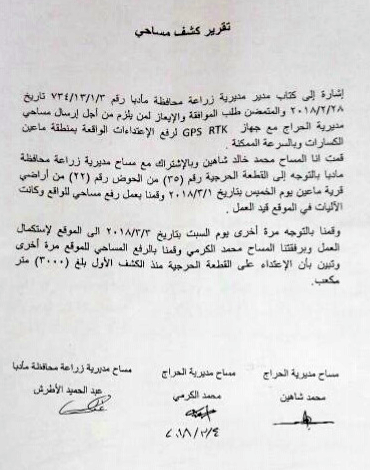 تقرير كشف مساحي
إشارة إلى كتاب مدير مديرية زراعة محافظة مأدبا رقم ٧٣٤/١٣/١/٣ تاريخ
٢٠١٨/٢/٢٨ والمتضمن طلب الموافقة والإيعاز لمن يلزم من أجل إرسال مساحي
مديرية الحراج مع جهاز GPS RTK لرفع الإعتداءات الواقعة بمنطقة ماعين
الكسارات وبالسرعة الممكنة .
قمت انا المساح محمد خالد شاهين وبالإشتراك مع مساح مديرية زراعة محافظة
مادبا بالتوجه إلى القطعة الحرجية رقم (٣٥) من الحوض رقم (٢٢) من أراضي
قرية ماعين يوم الخميس بتاريخ ٢٠١٨/٣/١ وقمنا بعمل رفع مساحي للواقع وكانت
الآليات في الموقع قيد العمل .
وقمنا بالتوجه مرة أخرى يوم السبت بتاريخ ٢٠١٨/٣/٣ الى الموقع لإستكمال
العمل وبرفقتنا المساح محمد الكرمي وقمنا بالرفع المساحي للموقع مرة أخرى
وتبين بأن الإعتداء على القطعة الحرجية منذ الكشف الأول بلغ (٣٠٠٠) متر
مكعب.
مساح مديرية الحراج مساح مديرية الحراج مساح مديرية زراعة محافظة مأدبا
محمد شاهين محمد الكرمي عبد الحميد الأطرش
٢٠١٨/٣/٤